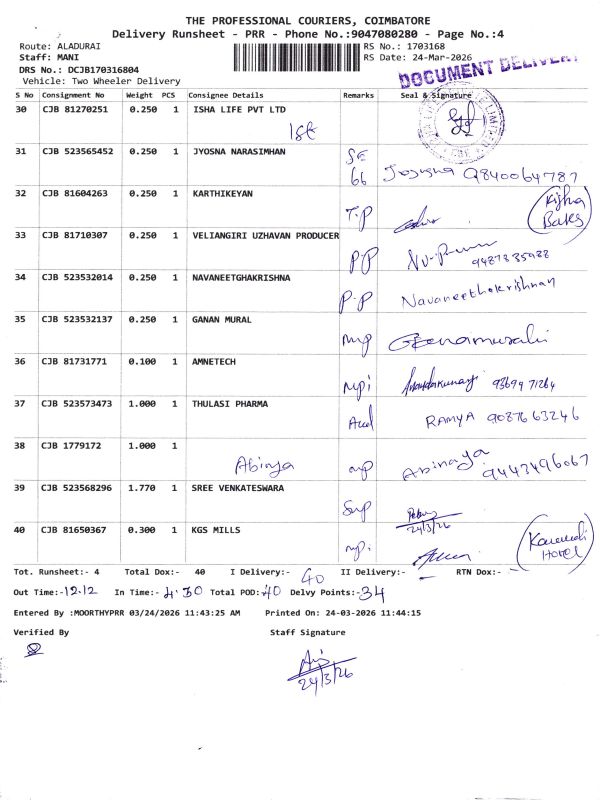 THE PROFESSIONAL COURIERS, COIMBATORE
Delivery Runsheet - PRR - Phone No.:9047080280 - Page No.:4
Route: ALADURAI RS No.: 1703168
Staff: MANI RS Date: 24-Mar-2026
DRS No.: DCJB170316804
Vehicle: Two Wheeler Delivery
DOCUMENT DELIVERY
S No Consignment No Weight PCS Consignee Details Remarks Seal & Signature
30 CJB 81270251 0.250 1 ISHA LIFE PVT LTD
1st
31 CJB 523565452 0.250 1 JYOSNA NARASIMHAN
66 9840064787
32 CJB 81604263 0.250 1 KARTHIKEYAN
T.P
33 CJB 81710307 0.250 1 VELIANGIRI UZHAVAN PRODUCER
P.P
34 CJB 523532014 0.250 1 NAVANEETHGAKRISHNA
P.P Navaneethakrishnan
35 CJB 523532137 0.250 1 GANAN MURAL
mp
36 CJB 81731771 0.100 1 AMNETECH
mpi
37 CJB 523573473 1.000 1 THULASI PHARMA
RAMYA 9087663246
38 CJB 1779172 1.000 1
Abinya mp Abinaya 9443496067
39 CJB 523568296 1.770 1 SREE VENKATESWARA
24/3/26
40 CJB 81650367 0.300 1 KGS MILLS
mpi Hotel
Tot. Runsheet:- 4 Total Dox:- 40 I Delivery:- 40 II Delivery:- RTN Dox:-
Out Time:-12.12 In Time:- 4.30 Total POD:-40 Delvy Points:-34
Entered By :MOORTHYPRR 03/24/2026 11:43:25 AM Printed On: 24-03-2026 11:44:15
Verified By Staff Signature
24/3/26